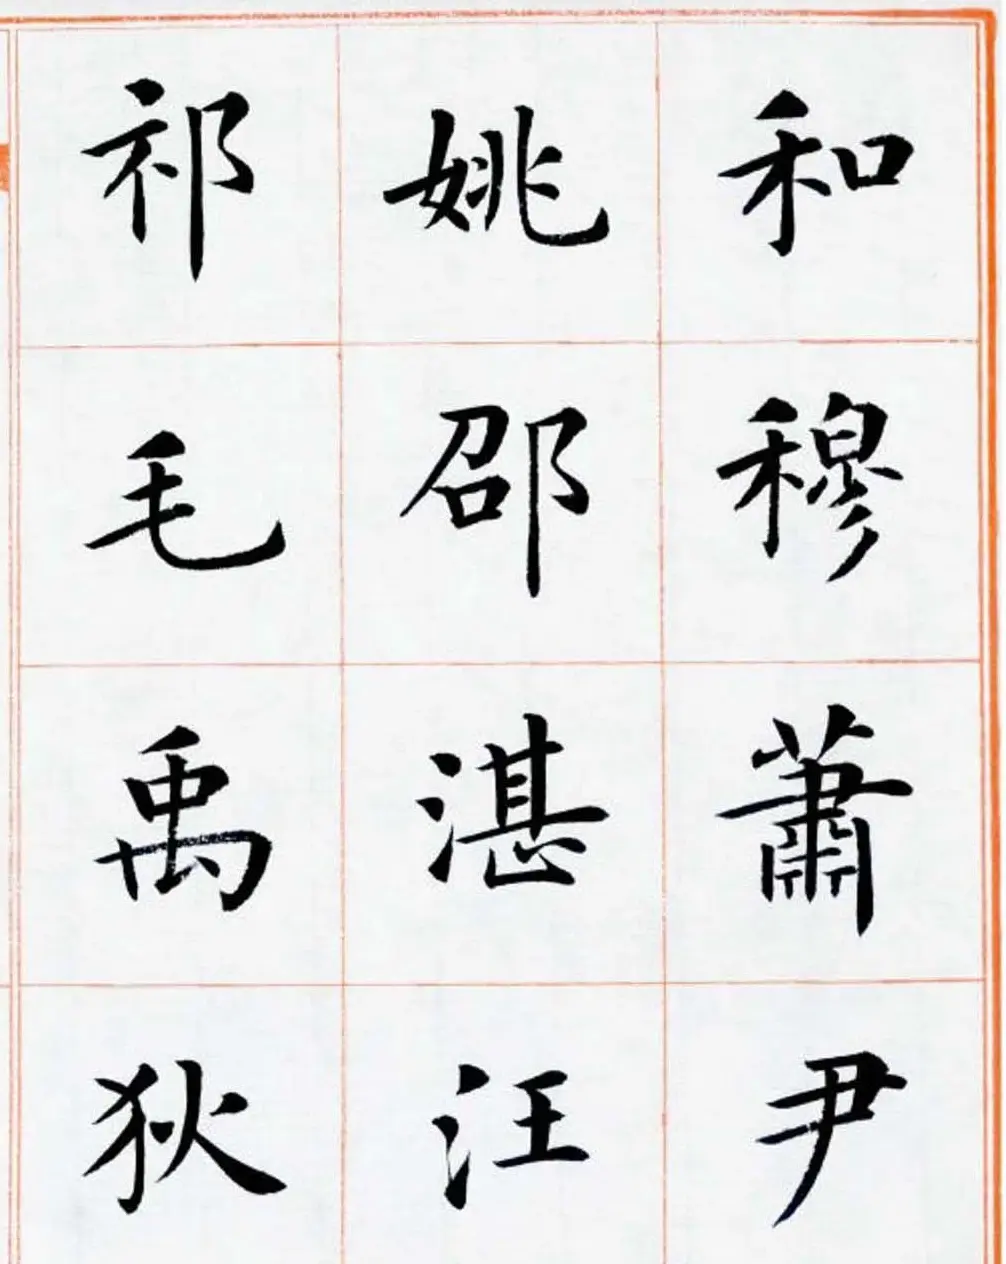 和穆蕭尹
姚邵湛汪
祁毛禹狄